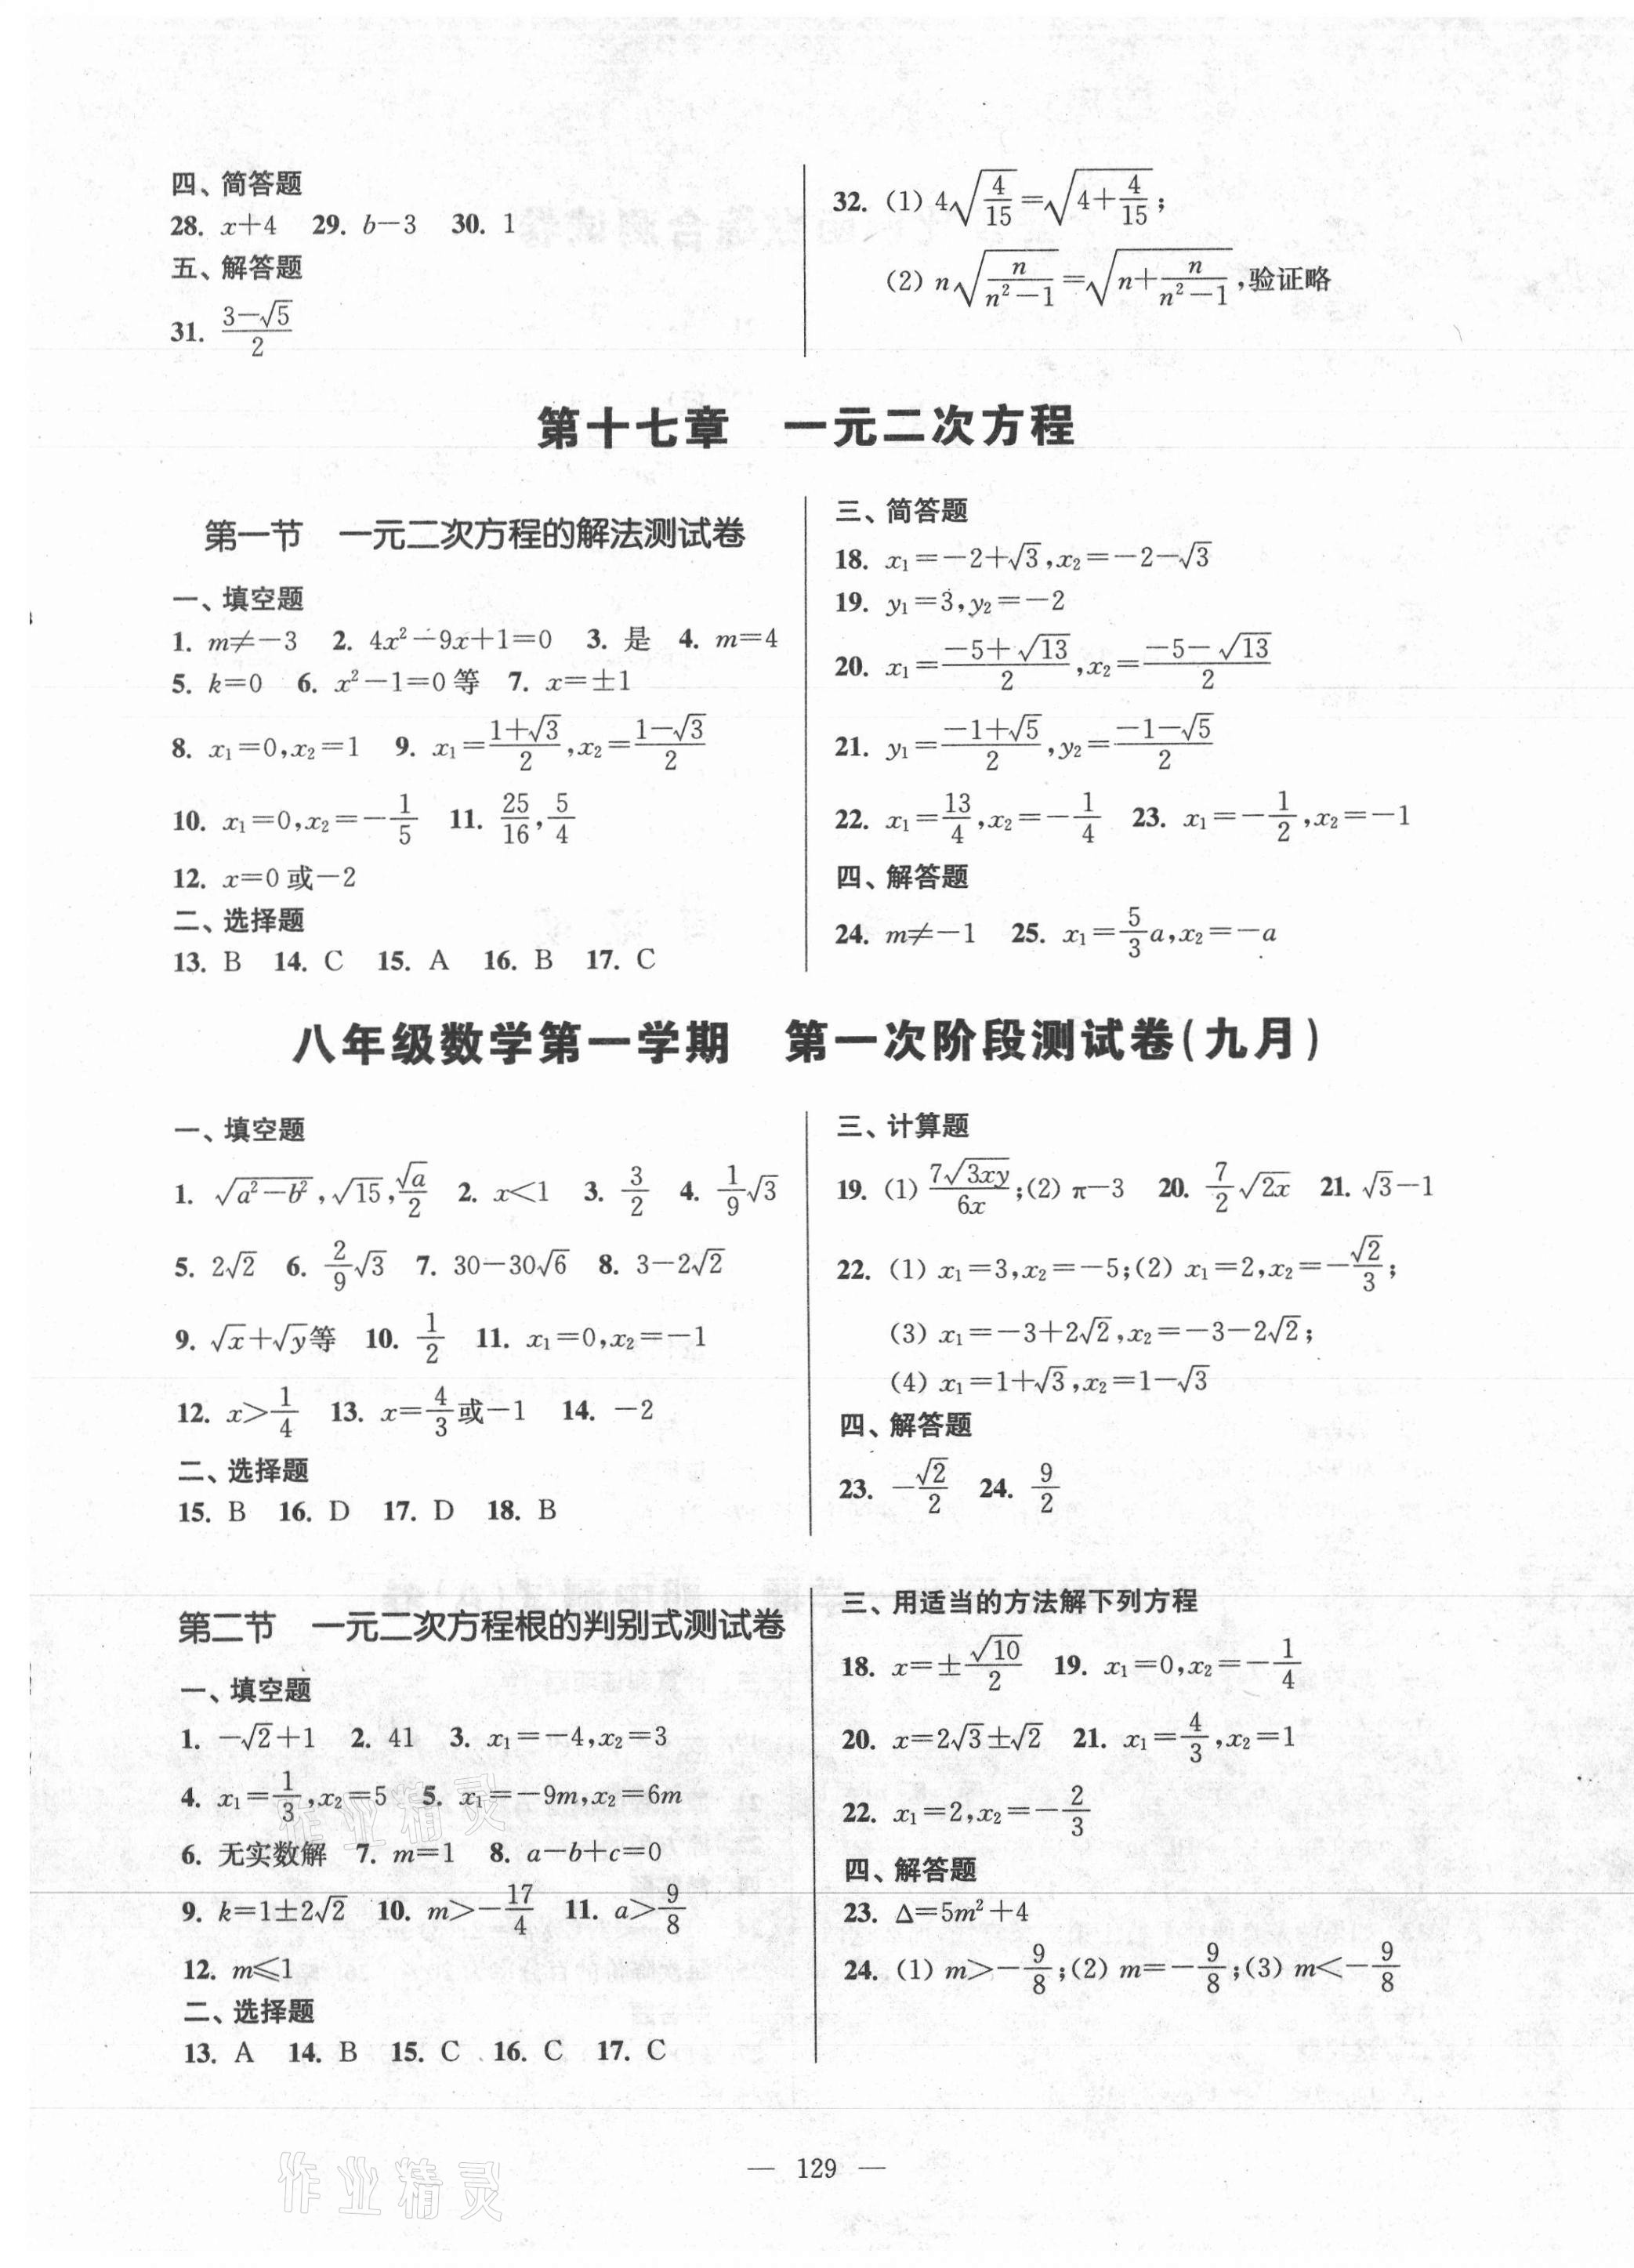 四、简答题
28. x+4 29. b−3 30. 1
五、解答题
31. (3−√5)/2
32. (1) 4√(4/15)=√(4+4/15);
(2) n√(n/(n²−1))=√(n+n/(n²−1)),验证略
第十七章 一元二次方程
第一节 一元二次方程的解法测试卷
一、填空题
1. m≠−3 2. 4x²−9x+1=0 3. 是 4. m=4
5. k=0 6. x²−1=0等 7. x=±1
8. x₁=0,x₂=1 9. x₁=(1+√3)/2,x₂=(1−√3)/2
10. x₁=0,x₂=−1/5 11. 25/16,5/4
12. x=0或−2
二、选择题
13. B 14. C 15. A 16. B 17. C
三、简答题
18. x₁=−2+√3,x₂=−2−√3
19. y₁=3,y₂=−2
20. x₁=(−5+√13)/2,x₂=(−5−√13)/2
21. y₁=(−1+√5)/2,y₂=(−1−√5)/2
22. x₁=13/4,x₂=−1/4 23. x₁=−1/2,x₂=−1
四、解答题
24. m≠−1 25. x₁=5/3a,x₂=−a
八年级数学第一学期 第一次阶段测试卷(九月)
一、填空题
1. √(a²−b²),√15,√a/2 2. x<1 3. 3/2 4. 1/9√3
5. 2√2 6. 2/9√3 7. 30−30√6 8. 3−2√2
9. √x+√y等 10. 1/2 11. x₁=0,x₂=−1
12. x>1/4 13. x=4/3或−1 14. −2
二、选择题
15. B 16. D 17. D 18. B
三、计算题
19. (1) 7√(3xy)/6x;(2) π−3 20. 7/2√(2x) 21. √3−1
22. (1) x₁=3,x₂=−5;(2) x₁=2,x₂=−√2/3;
(3) x₁=−3+2√2,x₂=−3−2√2;
(4) x₁=1+√3,x₂=1−√3
四、解答题
23. −√2/2 24. 9/2
第二节 一元二次方程根的判别式测试卷
一、填空题
1. −√2+1 2. 41 3. x₁=−4,x₂=3
4. x₁=1/3,x₂=5 5. x₁=−9m,x₂=6m
6. 无实数解 7. m=1 8. a−b+c=0
9. k=1±2√2 10. m>−17/4 11. a>9/8
12. m≤1
二、选择题
13. A 14. B 15. C 16. C 17. C
三、用适当的方法解下列方程
18. x=±√10/2 19. x₁=0,x₂=−1/4
20. x=2√3±√2 21. x₁=4/3,x₂=1
22. x₁=2,x₂=−2/3
四、解答题
23. Δ=5m²+4
24. (1) m>−9/8;(2) m=−9/8;(3) m<−9/8
作业精灵
作业精灵
— 129 —